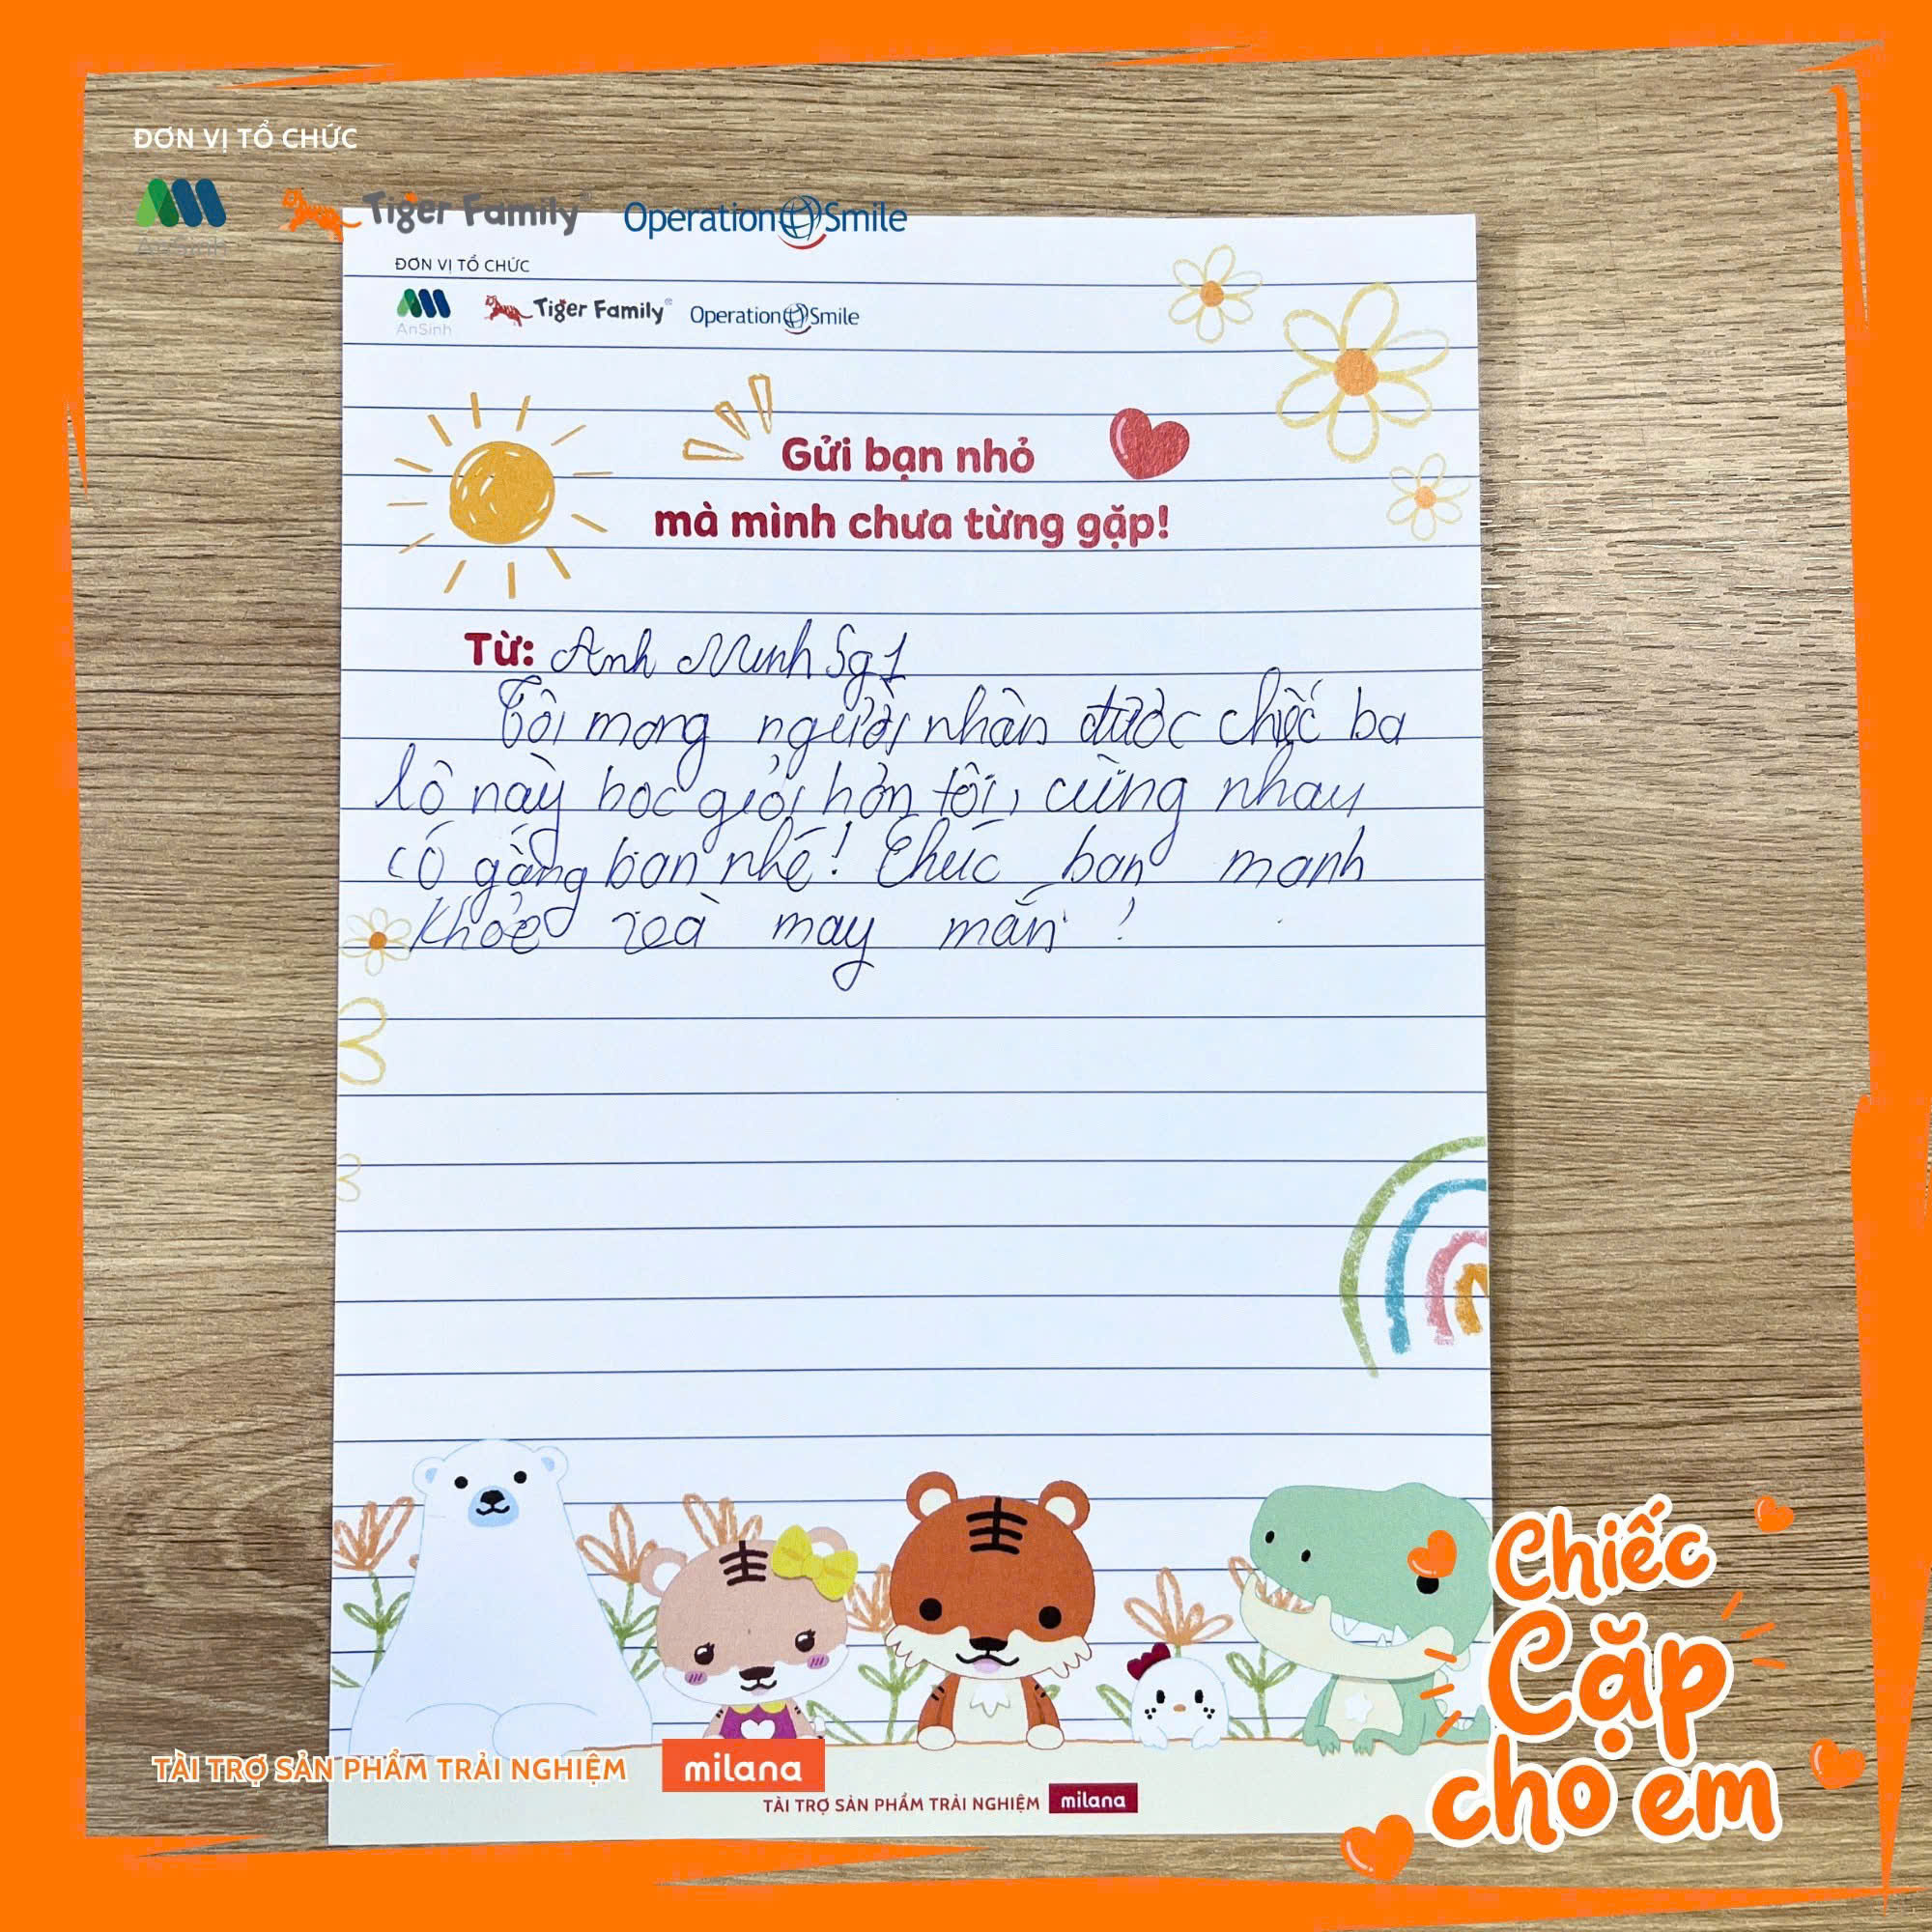 ĐƠN VỊ TỔ CHỨC
AnSinh
Tiger Family
Operation Smile
ĐƠN VỊ TỔ CHỨC
AnSinh
Tiger Family
Operation Smile
Gửi bạn nhỏ
mà mình chưa từng gặp!
Từ: Anh Minh Sg1
Tôi mong người nhận được chiếc ba
lô này học giỏi hơn tôi, cùng nhau
cố gắng bạn nhé! Chúc bạn mạnh
khỏe và may mắn!
Chiếc
Cặp
cho em
TÀI TRỢ SẢN PHẨM TRẢI NGHIỆM milana
TÀI TRỢ SẢN PHẨM TRẢI NGHIỆM milana